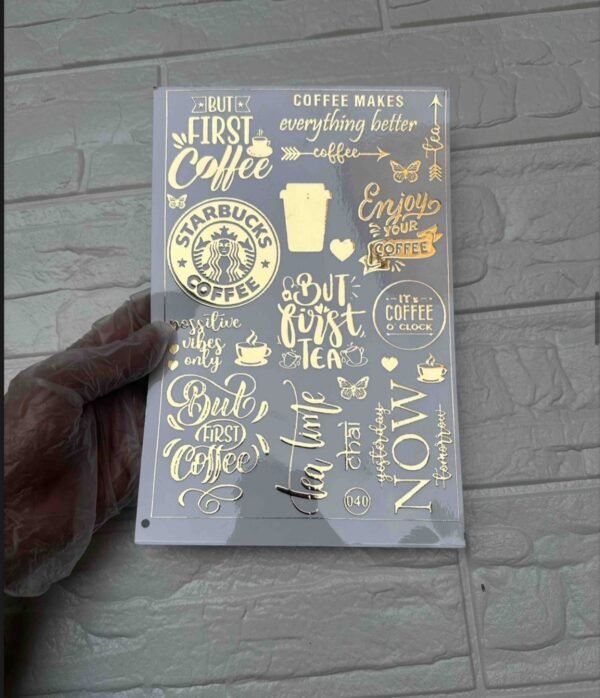 BUT
FIRST
Coffee
COFFEE MAKES
everything better
coffee
tea
STARBUCKS
COFFEE
Enjoy
YOUR
COFFEE
BUT
first
TEA
IT's
COFFEE
O'CLOCK
possitive
vibes
only
But
FIRST
Coffee
tea time
चाय
yesterday
NOW
tomorrow
040